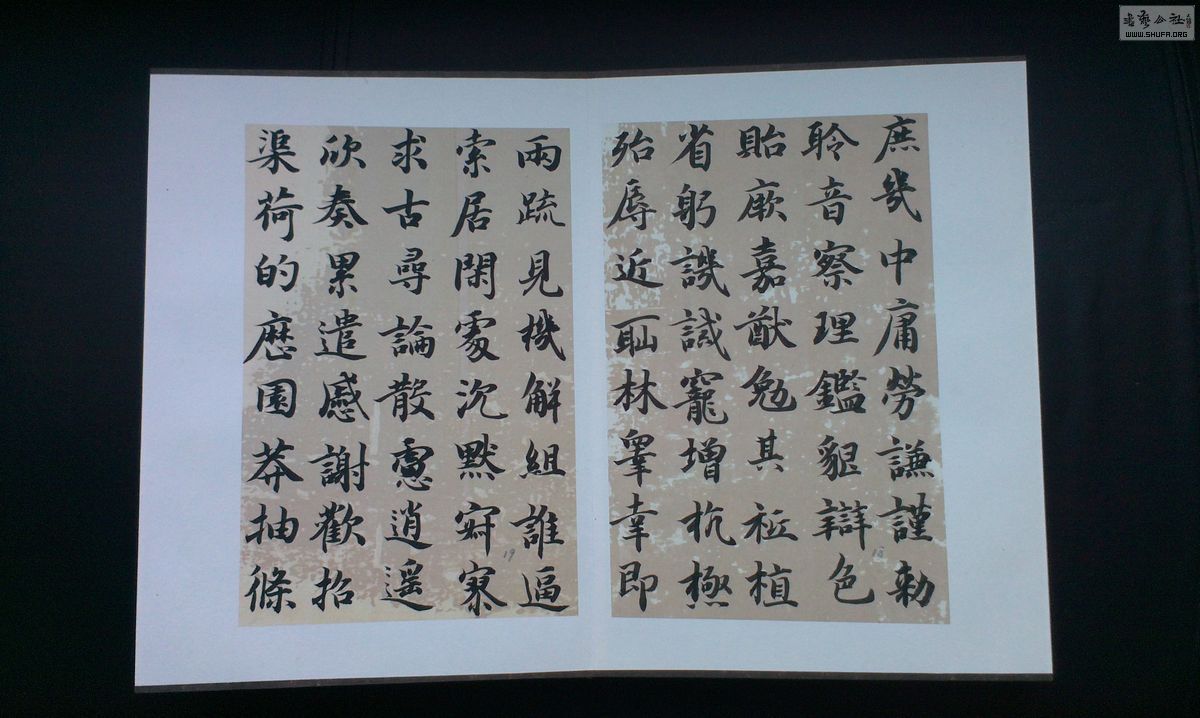 庶幾中庸勞謙謹勅
聆音察理鑑貌辯色
貽厥嘉猷勉其祗植
省躬譏誡寵增抗極
殆辱近恥林睾幸即
兩疏見機解組誰逼
索居閑處沉默寂寥
求古尋論散慮逍遙
欣奏累遣慼謝歡招
渠荷的歷園莽抽條
18
19
書藝公社
WWW.SHUFA.ORG